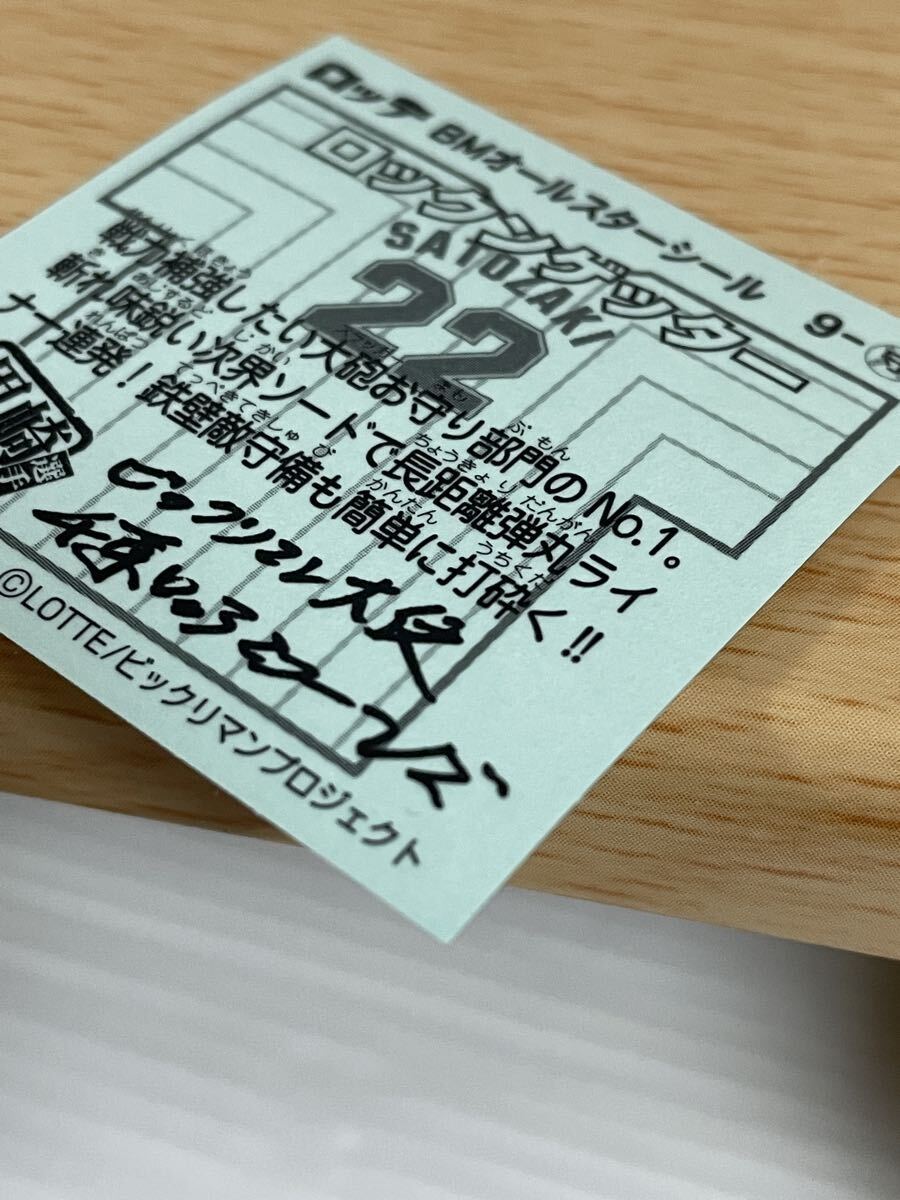 ロッテ BMオールスターシール 9-
ロックンゲッター
SATOZAKI
22
戦力補強したい大砲お守り部門のNO.1。
斬れ味鋭い次界ソードで長距離弾丸ライ
ナー連発! 鉄壁敵守備も簡単に打砕く!!
崎
選
ビックリマン大好
©LOTTE/ビックリマンプロジェクト